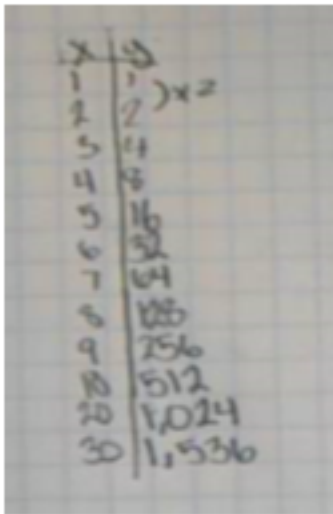 x y
1 1
2 2 ) x2
3 4
4 8
5 16
6 32
7 64
8 128
9 256
10 512
20 1,024
30 1,536